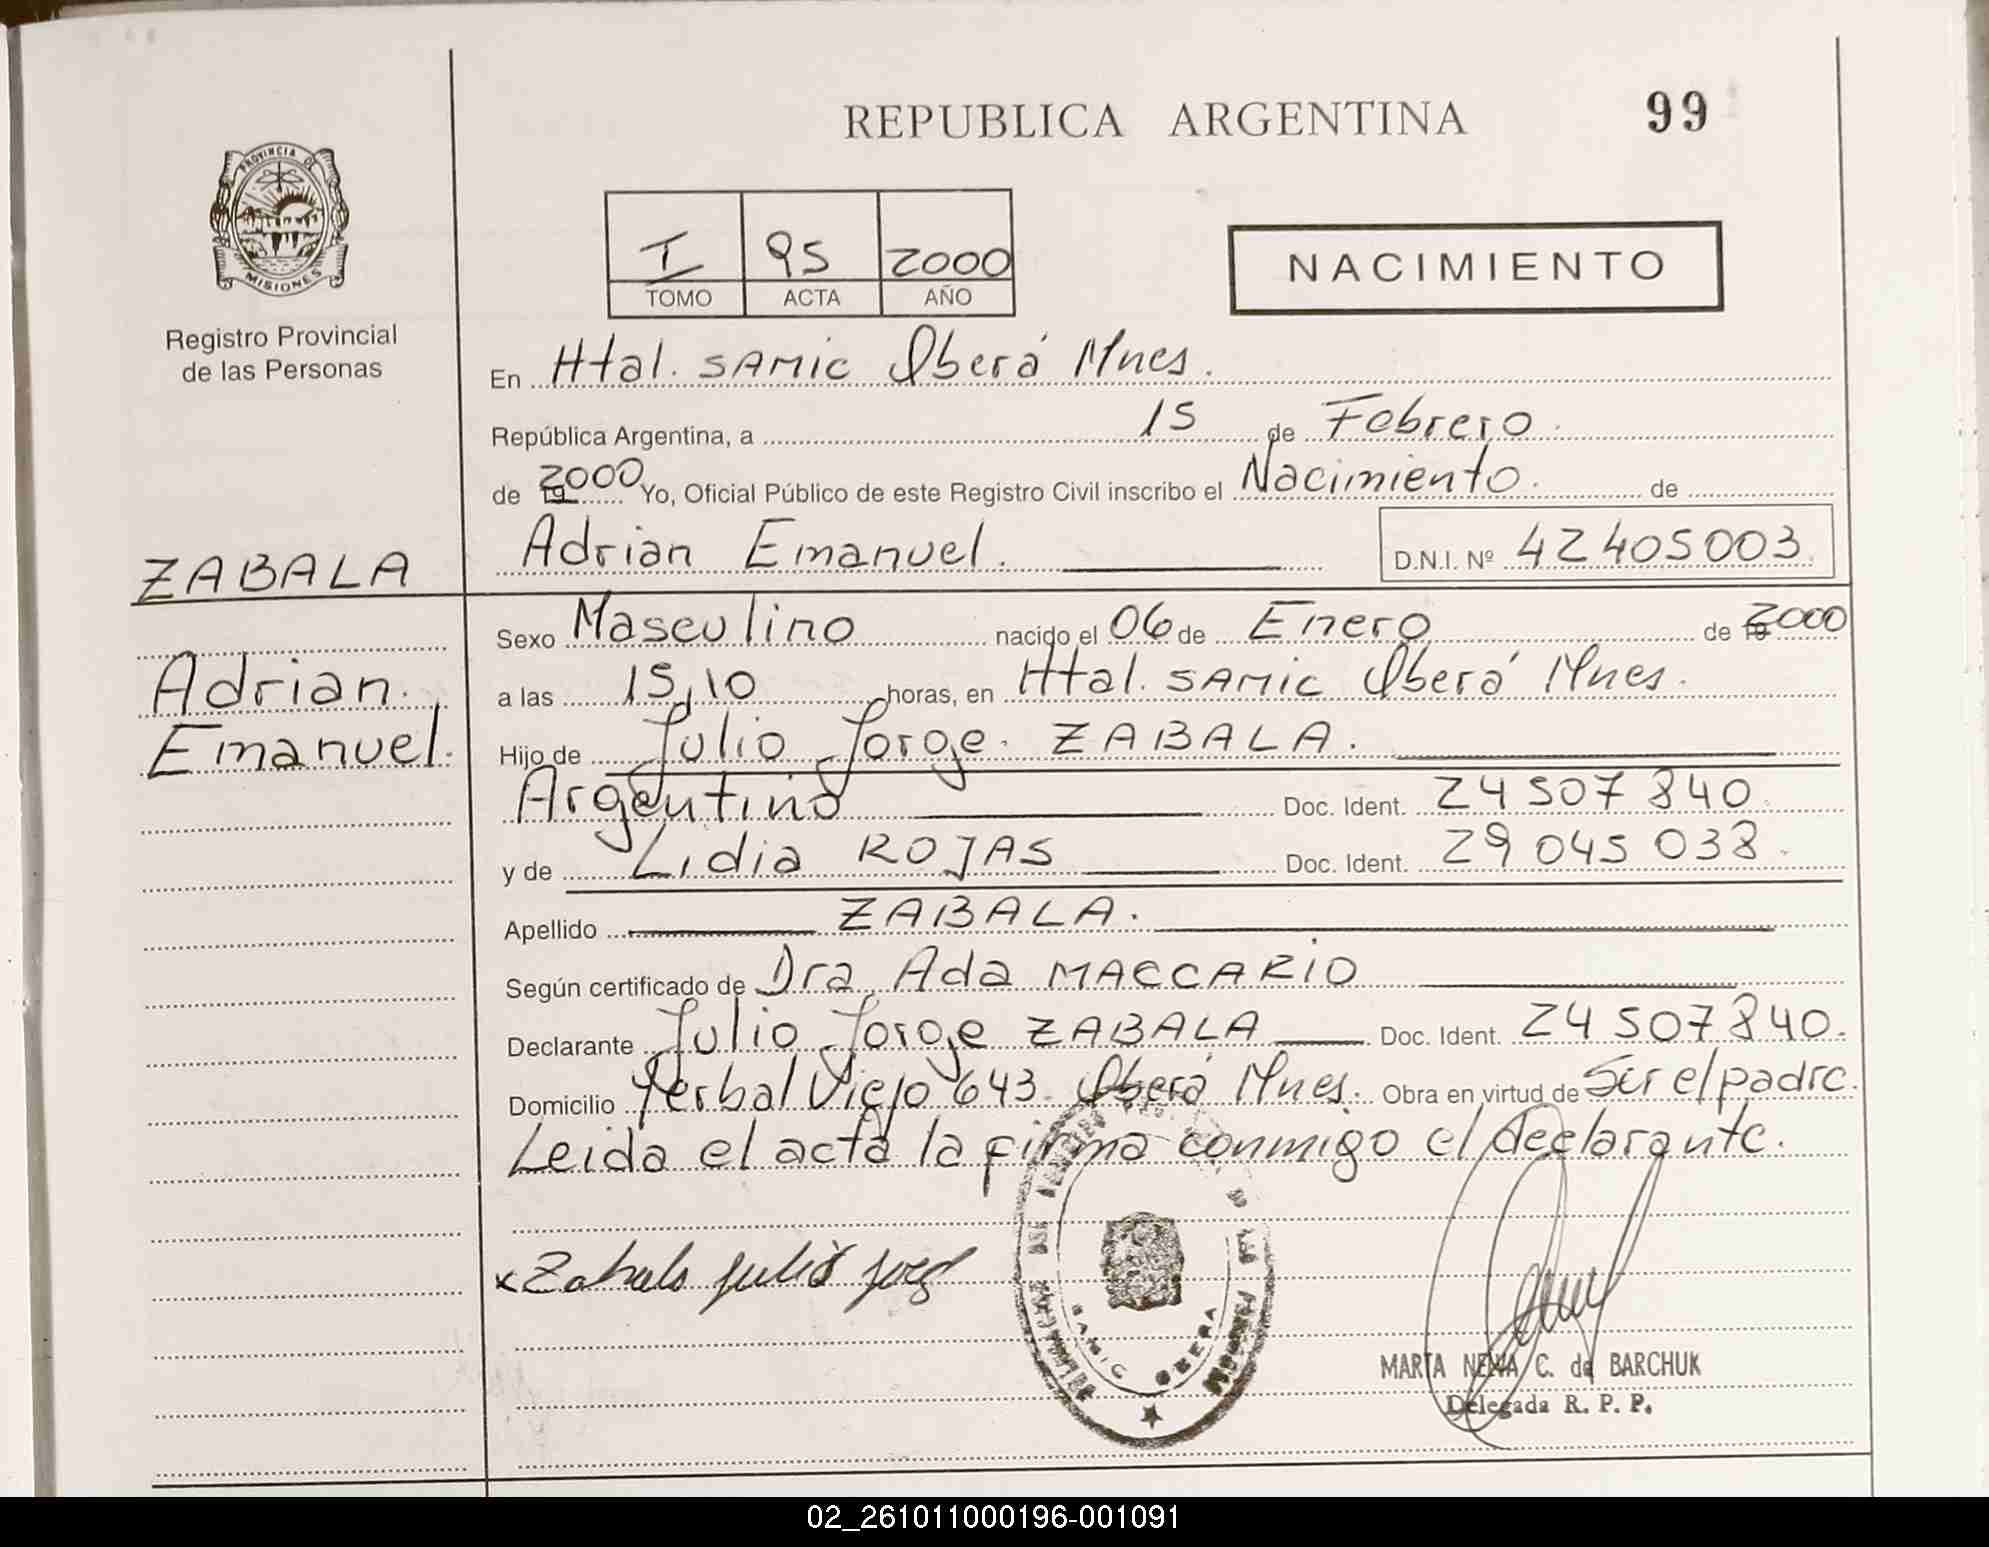 REPUBLICA ARGENTINA
99
PROVINCIA DE
MISIONES
Registro Provincial
de las Personas
I 95 2000
TOMO ACTA AÑO
NACIMIENTO
En Htal. SAMIC Oberá Mnes.
República Argentina, a 15 de Febrero
de 2000 Yo, Oficial Público de este Registro Civil inscribo el Nacimiento. de
Adrian Emanuel. D.N.I. Nº 42405003
ZABALA
Adrian.
Emanuel.
Sexo Masculino nacido el 06 de Enero de 2000
a las 15,10 horas, en Htal. SAMIC Oberá Mnes.
Hijo de Julio Jorge. ZABALA.
Argentino Doc. Ident. 24 507 840
y de Lidia ROJAS Doc. Ident. 29 045 038
Apellido ZABALA.
Según certificado de Dra, Ada MACCARIO
Declarante Julio Jorge ZABALA Doc. Ident. 24 507 840.
Domicilio Yerbal Viejo 643. Oberá Mnes. Obra en virtud de Ser el padre.
Leida el acta la firma conmigo el declarante.
x Zabala Julio Jorg
SAMIC OBERA
MARTA NENA C. de BARCHUK
Delegada R. P. P.
02_261011000196-001091